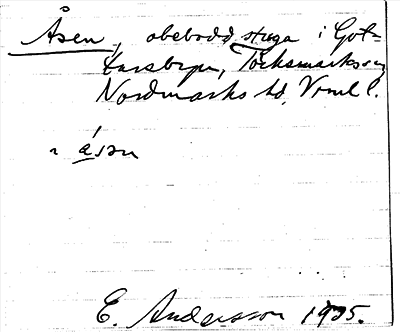 Åsen, obebodd stuga i Got-
tarsbyn, Töcksmarks sn
Nordmarks hd, Vrml l.
åsən
E. Andersson 1935.